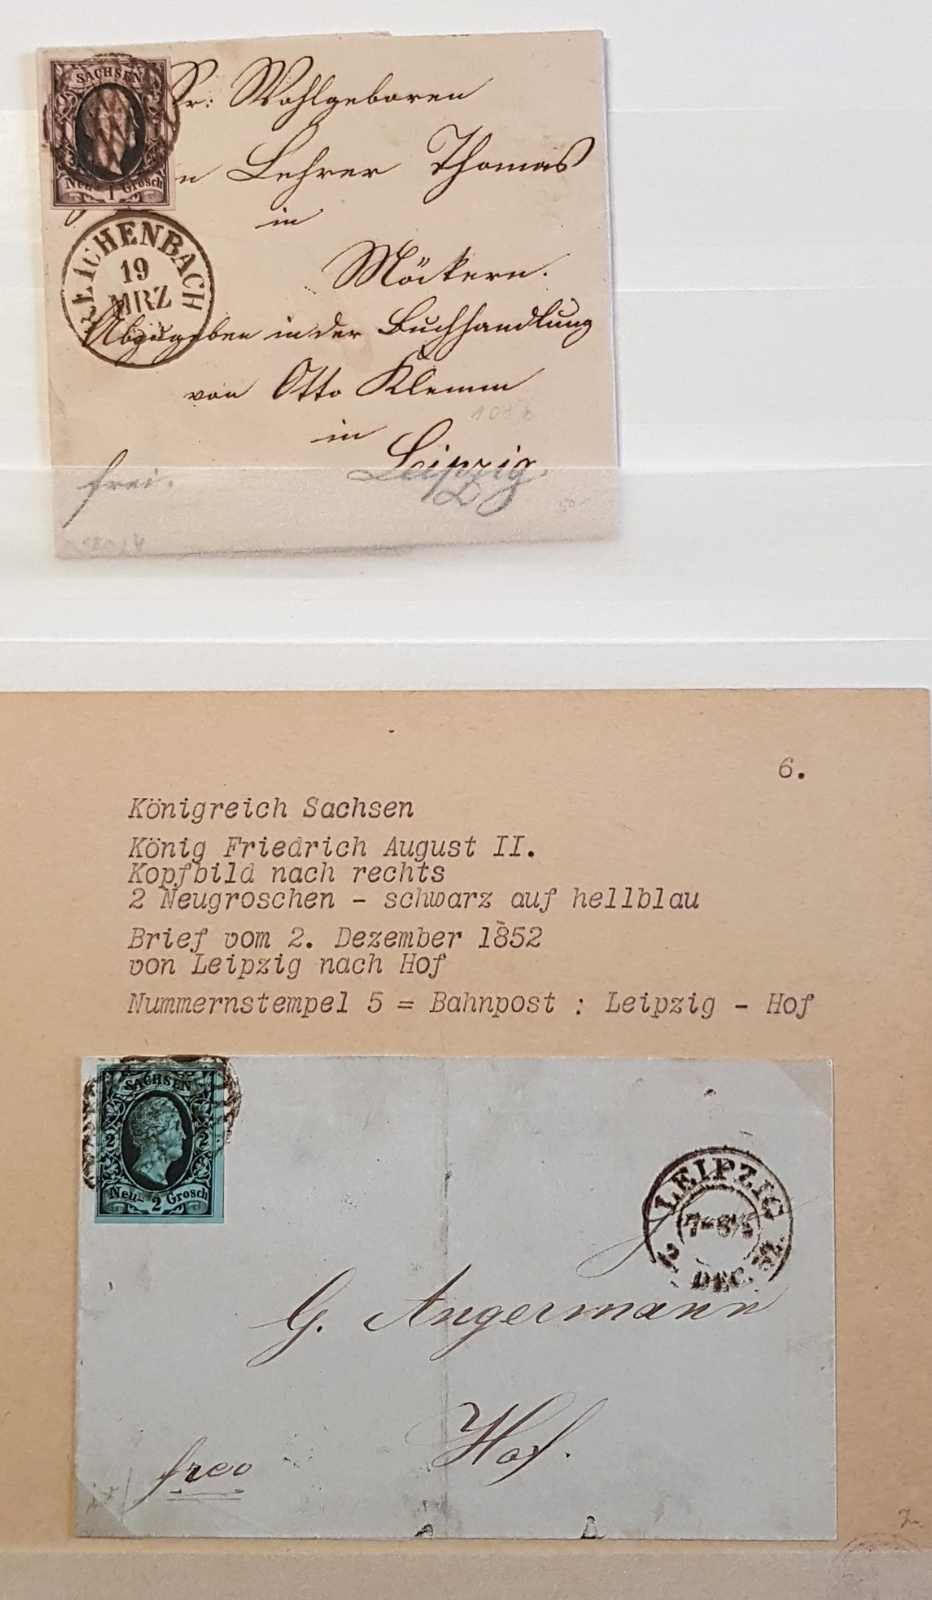 SACHSEN
Neu- 1 Grosch
Sr: Wohlgeboren
n Lehrer Thomas
in
Möckern.
Abzugeben in der Buchhandlung
von Otto Klemm
in
Leipzig.
frei.
REICHENBACH
19
MRZ
6.
Königreich Sachsen
König Friedrich August II.
Kopfbild nach rechts
2 Neugroschen - schwarz auf hellblau
Brief vom 2. Dezember 1852
von Leipzig nach Hof
Nummernstempel 5 = Bahnpost : Leipzig - Hof
SACHSEN
2 2
Neu- 2 Grosch
LEIPZIG
2 DEC. 52.
G. Angermann
Hof.